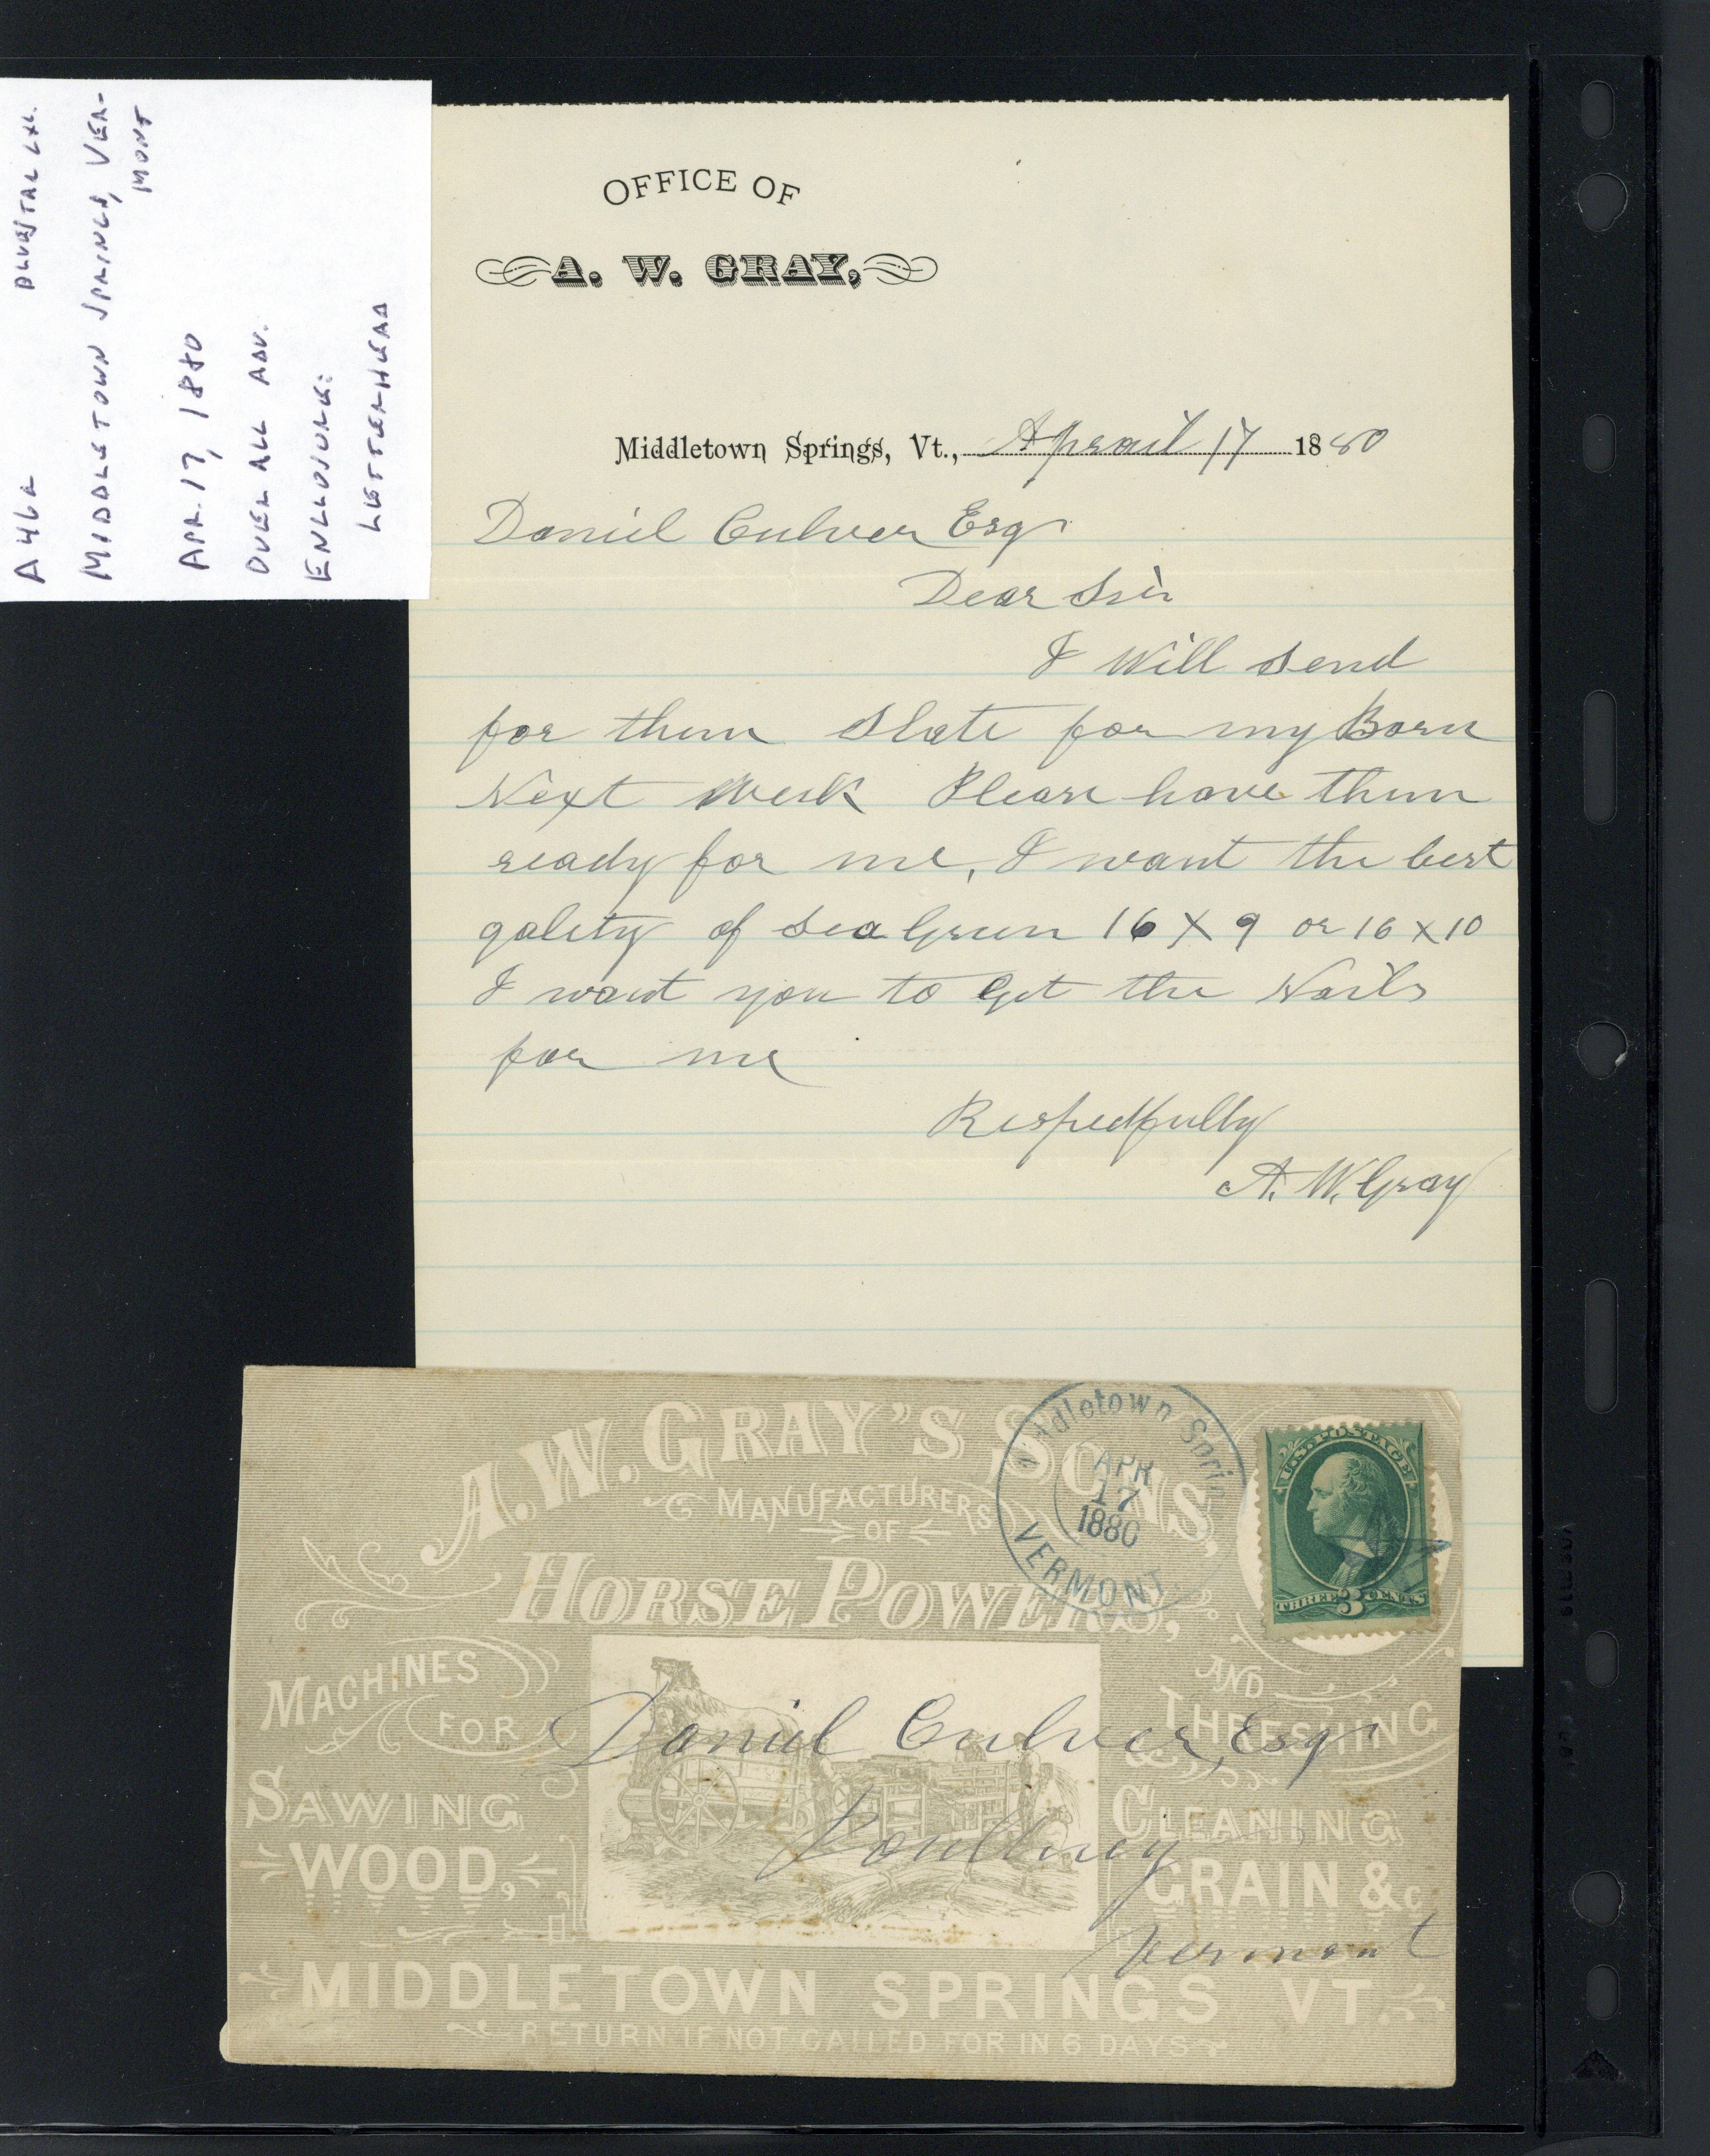 A46a BLUE/TAL CXL.
MIDDLETOWN SPRINGS, VER-
MONT
APR. 17, 1880
OVERALL ADV.
ENCLOSURE:
LETTERHEAD
OFFICE OF
A. W. GRAY,
Middletown Springs, Vt., Aprail 17 1880
Daniel Culver Esqr
Dear Sir
I Will send
for them Slate for my Barn
Next Week Please have them
ready for me, I want the best
qality of Sea Green 16 X 9 or 16 X 10
I want you to Get the Nails
for me
Respectfully
A. W. Gray
A.W. GRAY'S SONS,
MANUFACTURERS
OF
HORSE POWERS,
MACHINES
FOR
SAWING
WOOD,
AND
THRESHING
CLEANING
GRAIN &c
MIDDLETOWN SPRINGS VT.
RETURN IF NOT CALLED FOR IN 6 DAYS
Middletown Spri
APR
17
1880
VERMONT.
U.S. POSTAGE
THREE 3 CENTS
Daniel Culver, Esqr
Poultney
Vermont